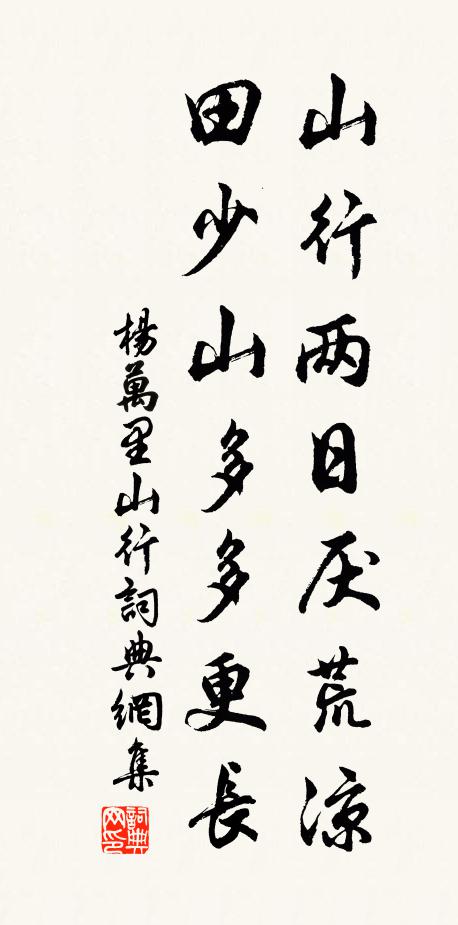 山行两日厌荒凉
田少山多多更長
楊萬里山行詞典網集
詞典网印